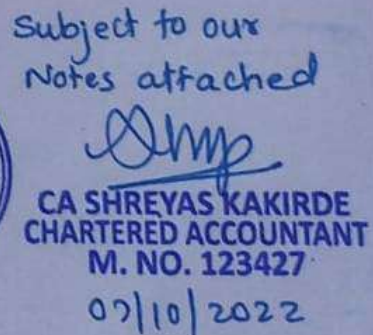 Subject to our
Notes attached
CA SHREYAS KAKIRDE
CHARTERED ACCOUNTANT
M. NO. 123427
07/10/2022